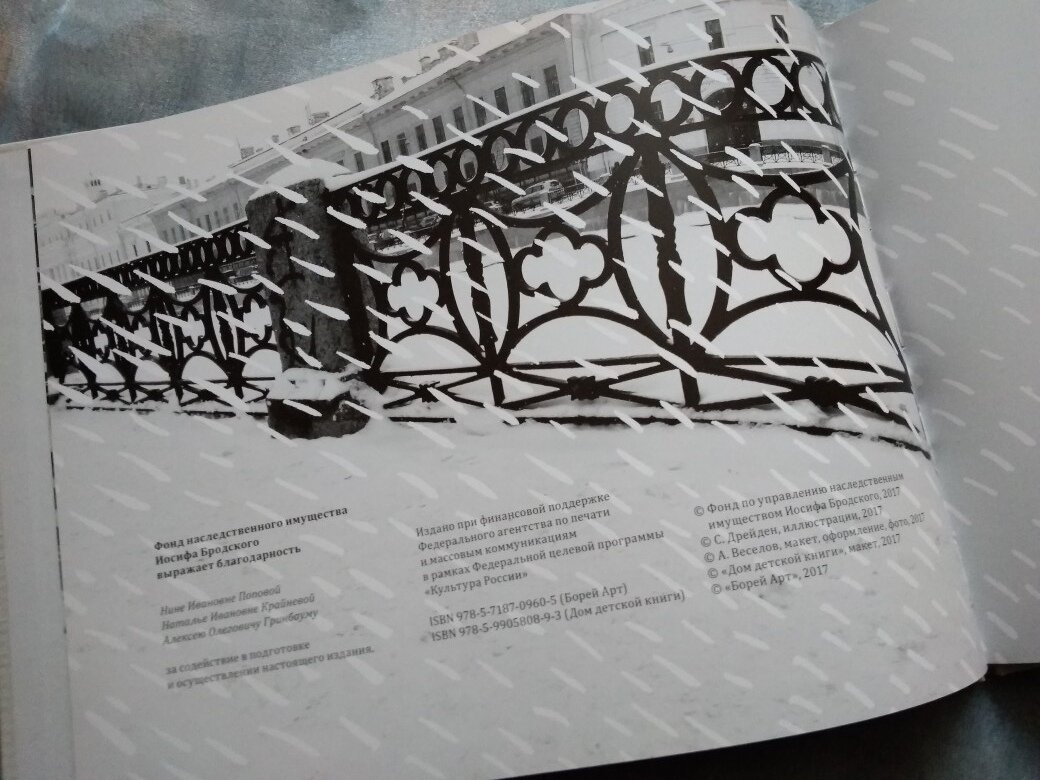 Фонд наследственного имущества
Иосифа Бродского
выражает благодарность
Нине Ивановне Поповой
Наталье Ивановне Крайневой
Алексею Олеговичу Гринбауму
за содействие в подготовке
и осуществлении настоящего издания.
Издано при финансовой поддержке
Федерального агентства по печати
и массовым коммуникациям
в рамках Федеральной целевой программы
«Культура России»
ISBN 978-5-7187-0960-5 (Борей Арт)
ISBN 978-5-9905808-9-3 (Дом детской книги)
© Фонд по управлению наследственным
имуществом Иосифа Бродского, 2017
© С. Дрейден, иллюстрации, 2017
© А. Веселов, макет, оформление, фото, 2017
© «Дом детской книги», макет, 2017
© «Борей Арт», 2017